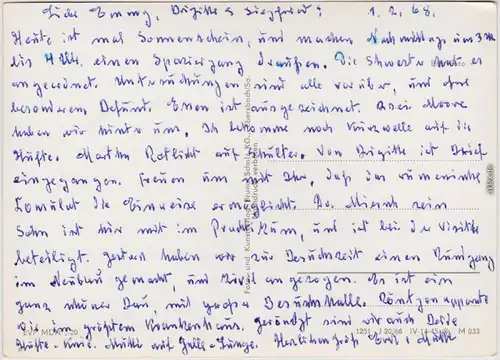 Liebe Emmy, Brigitte & Siegfried! 1. 2. 68.
Heute ist mal Sonnenschein, und machen Nachmittags um 3
bis 4 Uhr einen Spaziergang draußen. Die Schwester hat es
angeordnet. Untersuchungen sind alle vorüber, und ohne
besonderen Befund. Essen ist ausgezeichnet. Moore
haben wir hinter uns. Ich bekomme noch Kurzwelle auf die
Hüfte. Martha Rotlicht auf Schulter. Von Brigitte ist Brief
eingegangen. Freuen uns mit Ihr, daß das rumänische
Konsulat die Einreise ermöglicht. Dr. sein
Sohn ist hier mit im Praktikum, und ist bei der Visite
beteiligt. Gestern haben wir zur Besuchszeit einen Rundgang
im Neubau gemacht, und Zivil angezogen. Es ist ein
ganz schöner Bau, mit großer Besuchshalle. Röntgenapparate
wie im größten Krankenhaus. Geröntgt sind wir auch Beide
Hüfte - Knie. auf Galle - Lunge. Herzlichen Gruß
Foto- und Kunstverlag Bruno Scholz KG, Ebersbach/Sa.
Nachdruck verboten
EVP MDN 0,20
1251 J 20/66 IV-14-45
M 033